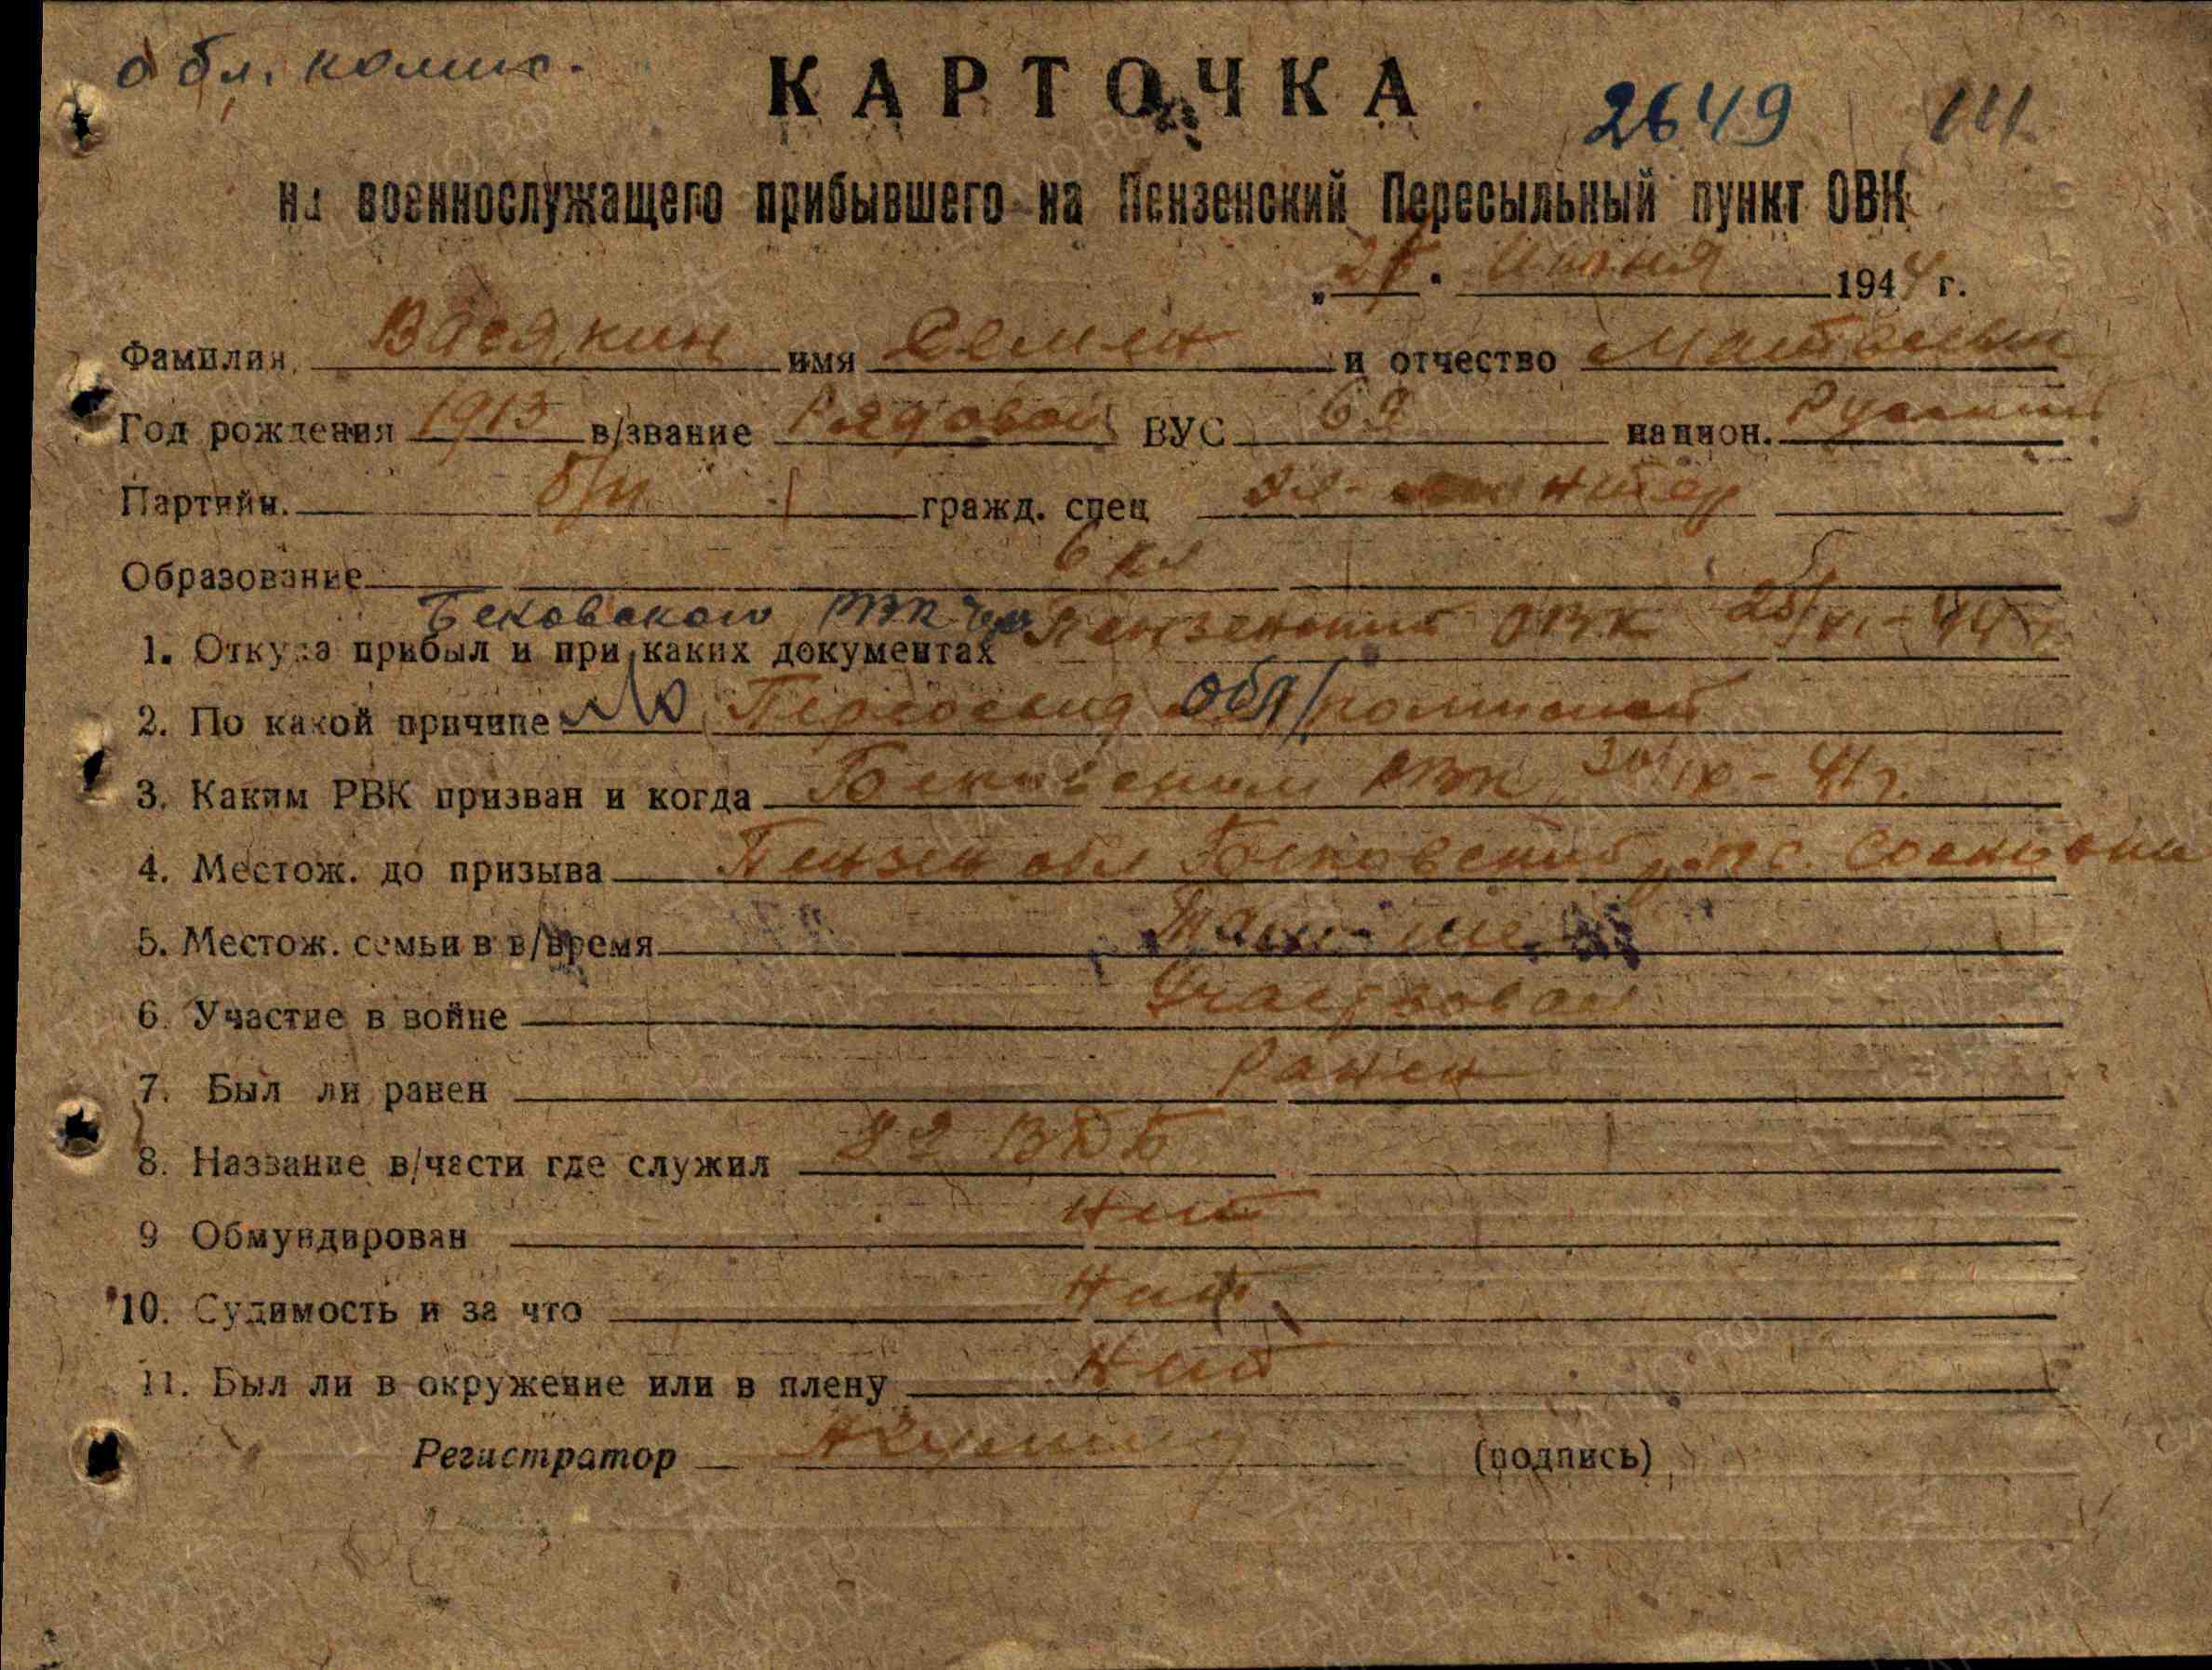 обл. комис.
КАРТОЧКА
2649
на военнослужащего прибывшего на Пензенский Пересыльный пункт ОВК
Июня 1944 г.
Фамилия Васякин имя Семен и отчество Матвеевич
Год рождения 1913 в/звание Рядовой ВУС национ. Русский
Партийн. б/п гражд. спец эл-монтер
Образование 6 кл
Бековского РВК чер Пензенский ОВК
1. Откуда прибыл и при каких документах
2. По какой причине Переосвид обл/комиссией
3. Каким РВК призван и когда Бековским РВК 30/IX-41 г.
4. Местож. до призыва Пензен обл Бековский р-н с.
5. Местож. семьи в в/время Там-же
6. Участие в войне Участвовал
7. Был ли ранен Ранен
8. Название в/части где служил ВДБ
9 Обмундирован Нет
10. Судимость и за что Нет
11. Был ли в окружение или в плену Нет
Регистратор (подпись)